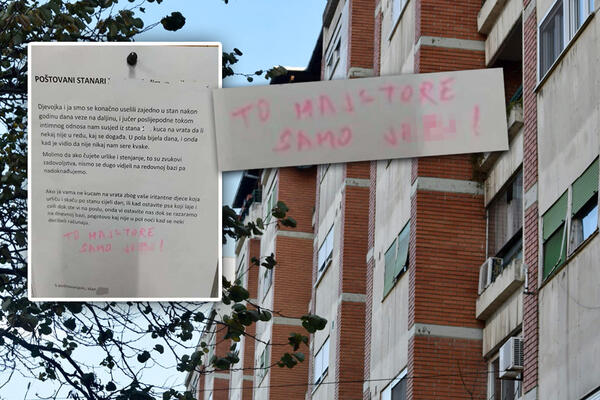 POŠTOVANI STANARI
Djevojka i ja smo se konačno uselili zajedno u stan nakon
godinu dana veze na daljinu, i jučer poslijepodne tokom
intimnog odnosa nam susjed iz stana kuca na vrata da li
nekaj nije u redu, kaj se događa. U pola bijela dana, i onda
kad je vidio da nije nikaj nam sere kvake.
Molimo da ako čujete urlike i stenjanje, to su zvukovi
zadovoljstva, nismo se dugo vidjeli na redovnoj bazi pa
nadoknađujemo.
Ako ja vama ne kucam na vrata zbog vaše iritantne djece koja
urliču i skaču po stanu cijeli dan, ili kad ostavite psa koji laje i
cvili dok ste vi na poslu, onda vi ostavite nas dok se razaramo
na dnevnoj bazi, pogotovo kaj nije u pol noći kad se neki
derišteti računaju.
TO MAJSTORE
SAMO !
TO MAJSTORE
SAMO !